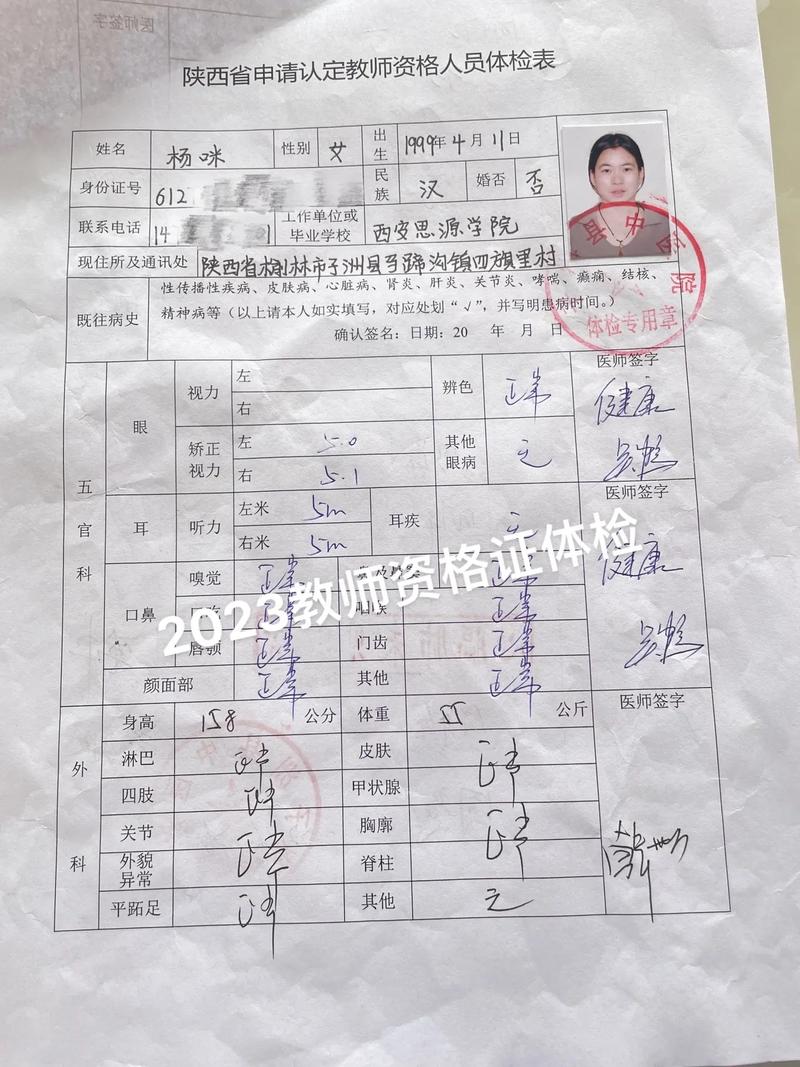 陕西省申请认定教师资格人员体检表
姓名 杨咪 性别 女 出生 1999年4月11日
身份证号 612 民族 汉 婚否 否
联系电话 14 1 工作单位或毕业学校 西安思源学院
现住所及通讯处 陕西省榆林市子洲县 沟镇四旗里村
既往病史
性传播性疾病、皮肤病、心脏病、肾炎、肝炎、关节炎、哮喘、癫痫、结核、
精神病等（以上请本人如实填写，对应处划“√”，并写明患病时间。）
确认签名：日期：20 年 月 日
县中 院
体检专用章
五官科
眼 视力 左 辨色 正常 医师签字
右 健康
矫正视力 左 5.0 其他眼病 无
右 5.1
耳 听力 左米 5m 耳疾 无 医师签字
右米 5m 健康
口鼻 嗅觉 正常 正常
正常 咽喉 正常
唇颚 正常 门齿 正常
颜面部 正常 其他 正常
2023教师资格证体检
外科
身高 158 公分 体重 55 公斤 医师签字
淋巴 正常 皮肤 正常
四肢 正常 甲状腺
关节 正常 胸廓 正常
外貌异常 脊柱
平跖足 正常 其他 无
医师签字